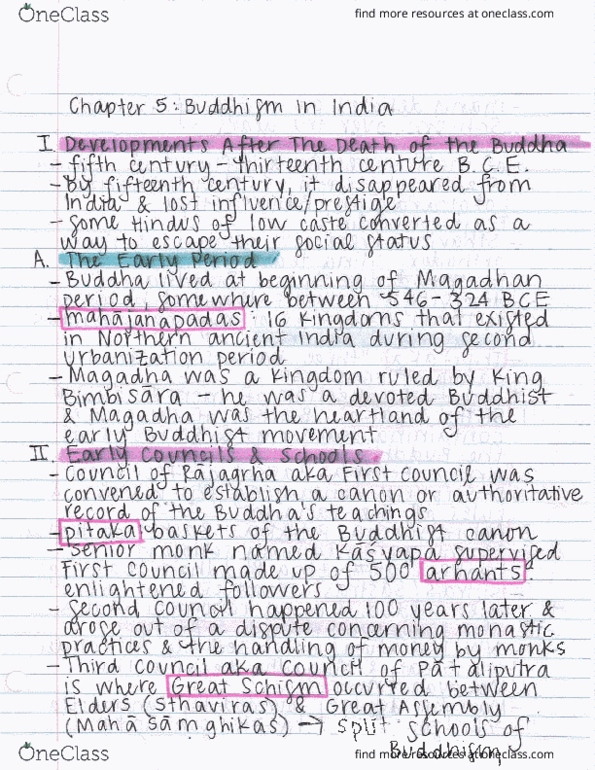 OneClass
find more resources at oneclass.com
Chapter 5: Buddhism in India
I. Developments After The Death of the Buddha
- fifth century - thirteenth centure B.C.E.
- By fifteenth century, it disappeared from
India & lost influence/prestige
- Some Hindus of low caste converted as a
way to escape their social status
A. The Early Period
- Buddha lived at beginning of Magadhan
period, somewhere between 546-324 BCE
- mahājanapadas: 16 kingdoms that existed
in Northern ancient India during second
urbanization period
- Magadha was a kingdom ruled by King
Bimbisāra - he was a devoted Buddhist
& Magadha was the heartland of the
early Buddhist movement
II. Early Councils & Schools
- Council of Rājagrha aka First Council was
convened to establish a canon or authoritative
record of the Buddha's teachings
- pitaka: baskets of the Buddhist canon
- Senior monk named Kāśyapa supervised
First Council made up of 500 arhants:
enlightened followers
- Second Council happened 100 years later &
arose out of a dispute concerning monastic
practices & the handling of money by monks
- Third Council aka Council of Pātaliputra
is where Great Schism occurred between
Elders (Sthaviras) & Great Assembly
(Mahā Sāmghikas) → split schools of
Buddhism
OneClass
find more resources at oneclass.com